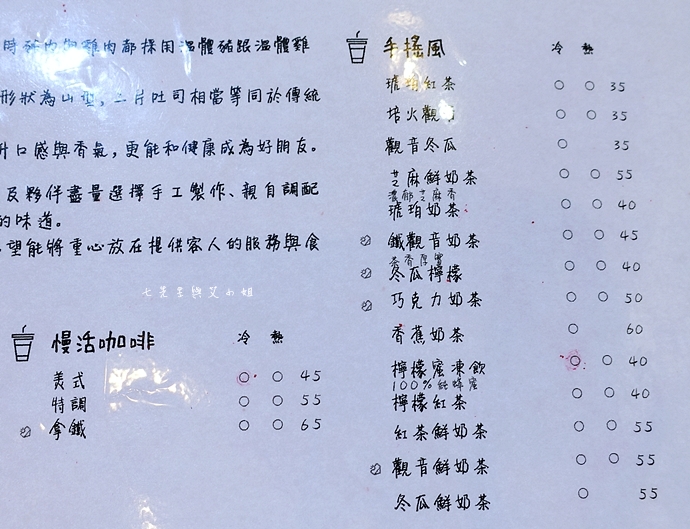 時豬肉與雞肉都採用溫體豬跟溫體雞
形狀為山型,二片吐司相當等同於傳統
升口感與香氣,更能和健康成為好朋友。
及夥伴盡量選擇手工製作、親自調配
的味道。
望能將重心放在提供客人的服務與食
慢活咖啡 冷 熱
美式 ○ ○ 45
特調 ○ ○ 55
拿鐵 ○ ○ 65
手搖風 冷 熱
琥珀紅茶 ○ ○ 35
培火觀 ○ ○ 35
觀音冬瓜 ○ 35
芝麻鮮奶茶 ○ ○ 55
濃郁芝麻香
琥珀奶茶 ○ ○ 40
鐵觀音奶茶 ○ ○ 45
茶香厚實
冬瓜檸檬 ○ ○ 40
巧克力奶茶 ○ ○ 50
香蕉奶茶 ○ 60
檸檬蜜凍飲 ○ ○ 40
100%純蜂蜜
檸檬紅茶 ○ ○ 40
紅茶鮮奶茶 ○ ○ 55
觀音鮮奶茶 ○ ○ 55
冬瓜鮮奶茶 ○ 55